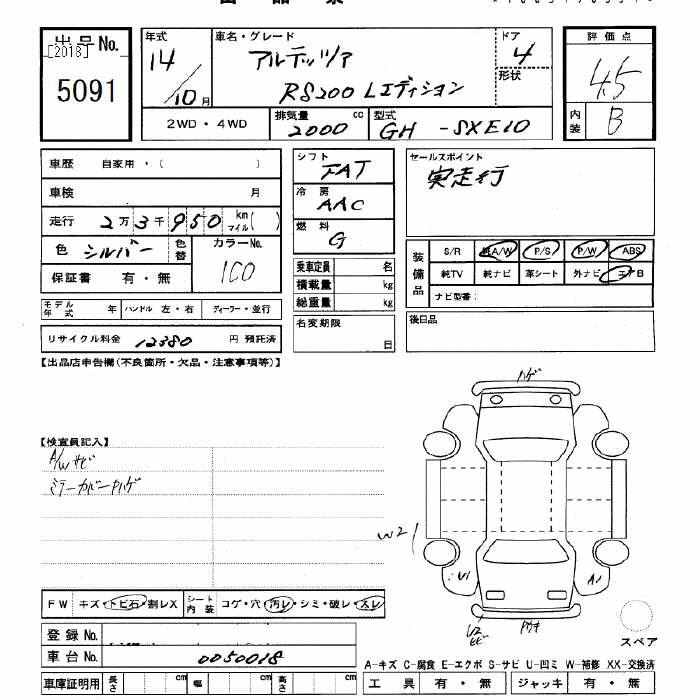 出品No.
[2018]
5091
年式
14/10月
車名・グレード
アルテッツァ
RS200 Lエディション
ドア
4
形状
評価点
4.5
内装
B
2WD・4WD
排気量
2000 cc
型式
GH -SXE10
車歴 自家用・( )
車検 月
走行 2万3千950 km マイル( )
色 シルバー 色替
カラーNo.
1C0
保証書 有・無
シフト
FAT
冷房
AAC
燃料
G
セールスポイント
実走行
乗車定員 名
積載量 kg
総重量 kg
装備品
S/R 純A/W P/S P/W ABS
純TV 純ナビ 革シート 外ナビ エアB
ナビ型番:
モデル年式 年 ハンドル 左・右 ディーラー・並行
名変期限 日
後日品
リサイクル料金 12380 円 預託済
【出品店申告欄(不良箇所・欠品・注意事項等)】
ハゲ
【検査員記入】
A/Wサビ
ミラーカバーナハゲ
W2
U1
A1
FW キズ・トビ石・割レX
シート内装 コゲ・穴・汚レ・シミ・破レ・スレ
U2
登録No.
スペア
車台No. 0050018
A-キズ C-腐食 E-エクボ S-サビ U-凹ミ W-補修 XX-交換済
車庫証明用 長さ cm 幅 cm 高さ cm
工具 有・無 ジャッキ 有・無